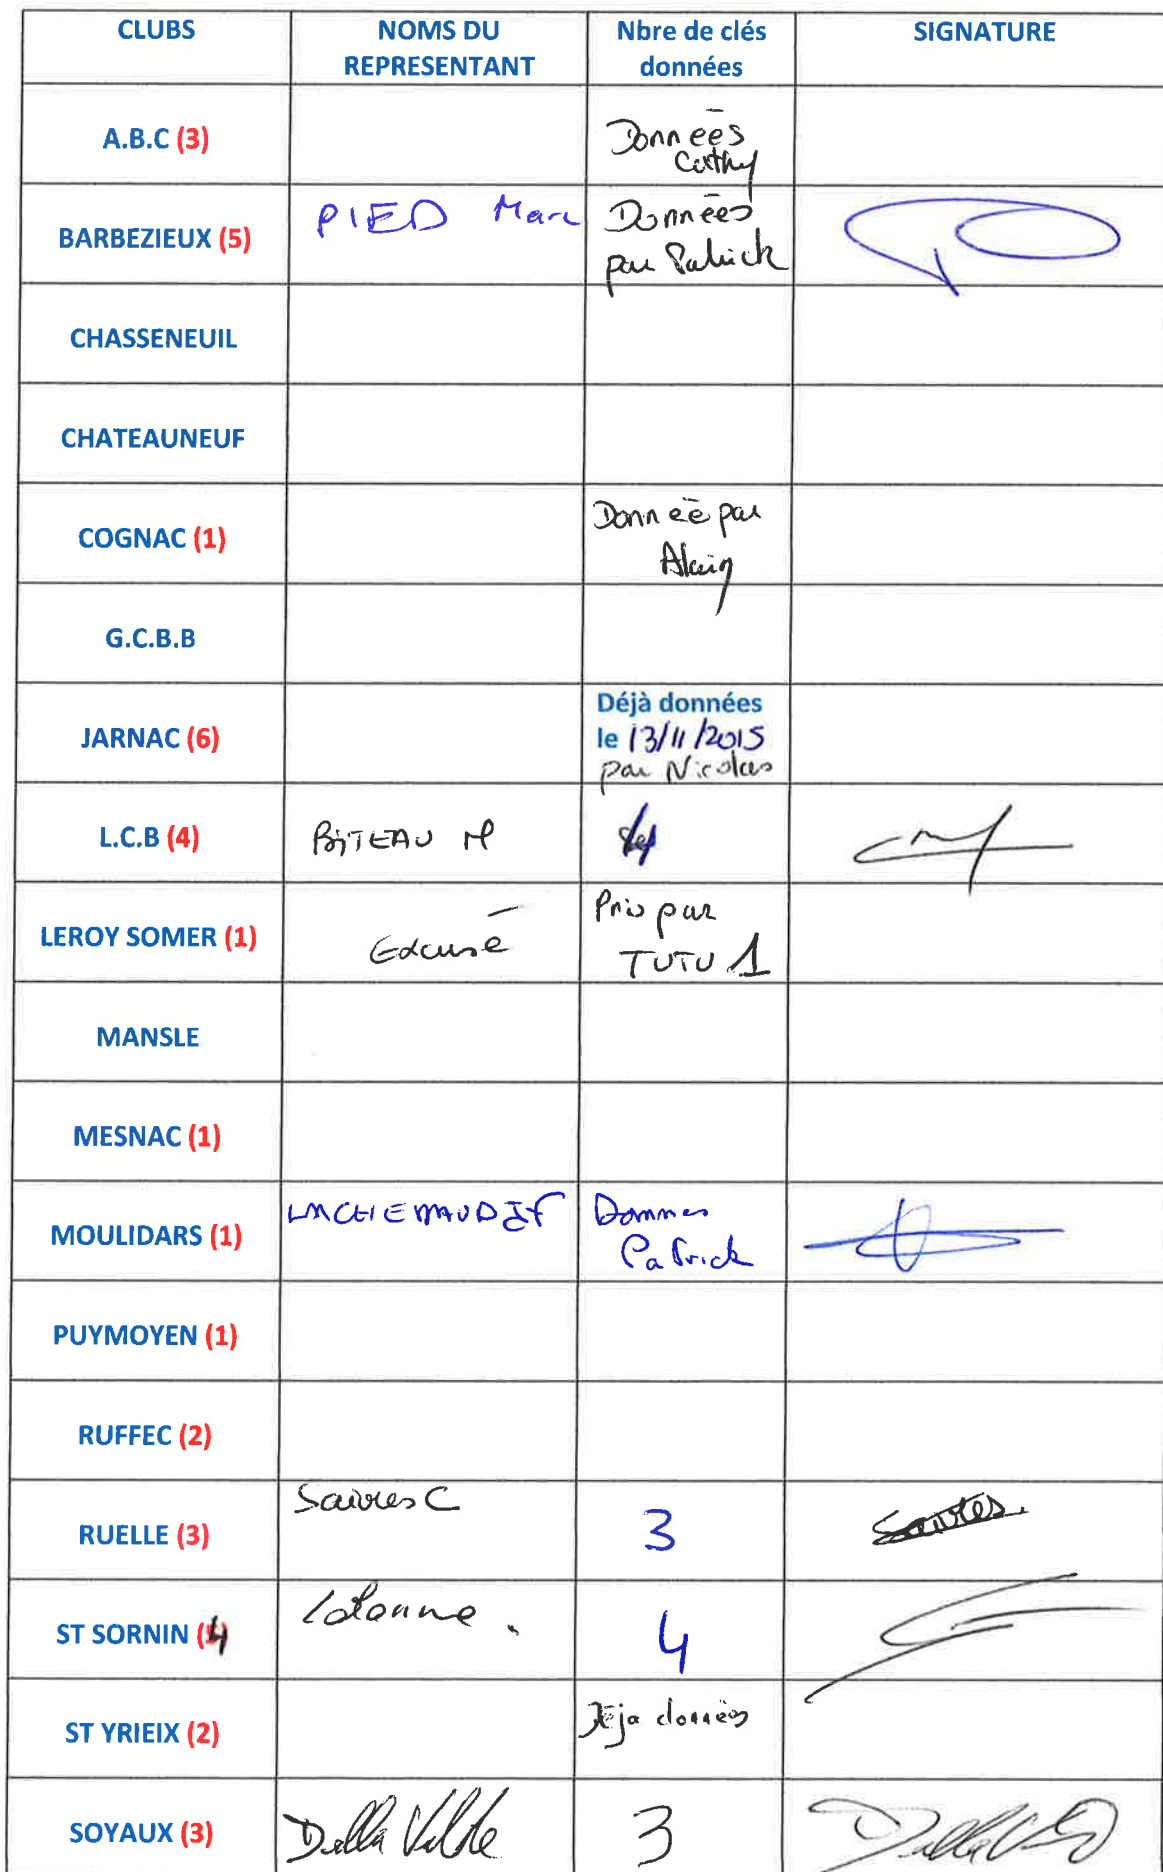 CLUBS
NOMS DU
REPRESENTANT
Nbre de clés
données
SIGNATURE
A.B.C (3)
Données
Cathy
BARBEZIEUX (5)
PIED Marc
Données
par Patrick
CHASSENEUIL
CHATEAUNEUF
COGNAC (1)
Donnée par
Alain
G.C.B.B
JARNAC (6)
Déjà données
le 13/11/2015
par Nicolas
L.C.B (4)
BITEAU M
4
LEROY SOMER (1)
Excusé
Pris par
TUTU 1
MANSLE
MESNAC (1)
MOULIDARS (1)
LACHEMAUD JF
Données
Patrick
PUYMOYEN (1)
RUFFEC (2)
RUELLE (3)
Saivres C
3
Saivres
ST SORNIN (4)
4
ST YRIEIX (2)
Déja données
SOYAUX (3)
Della Valle
3